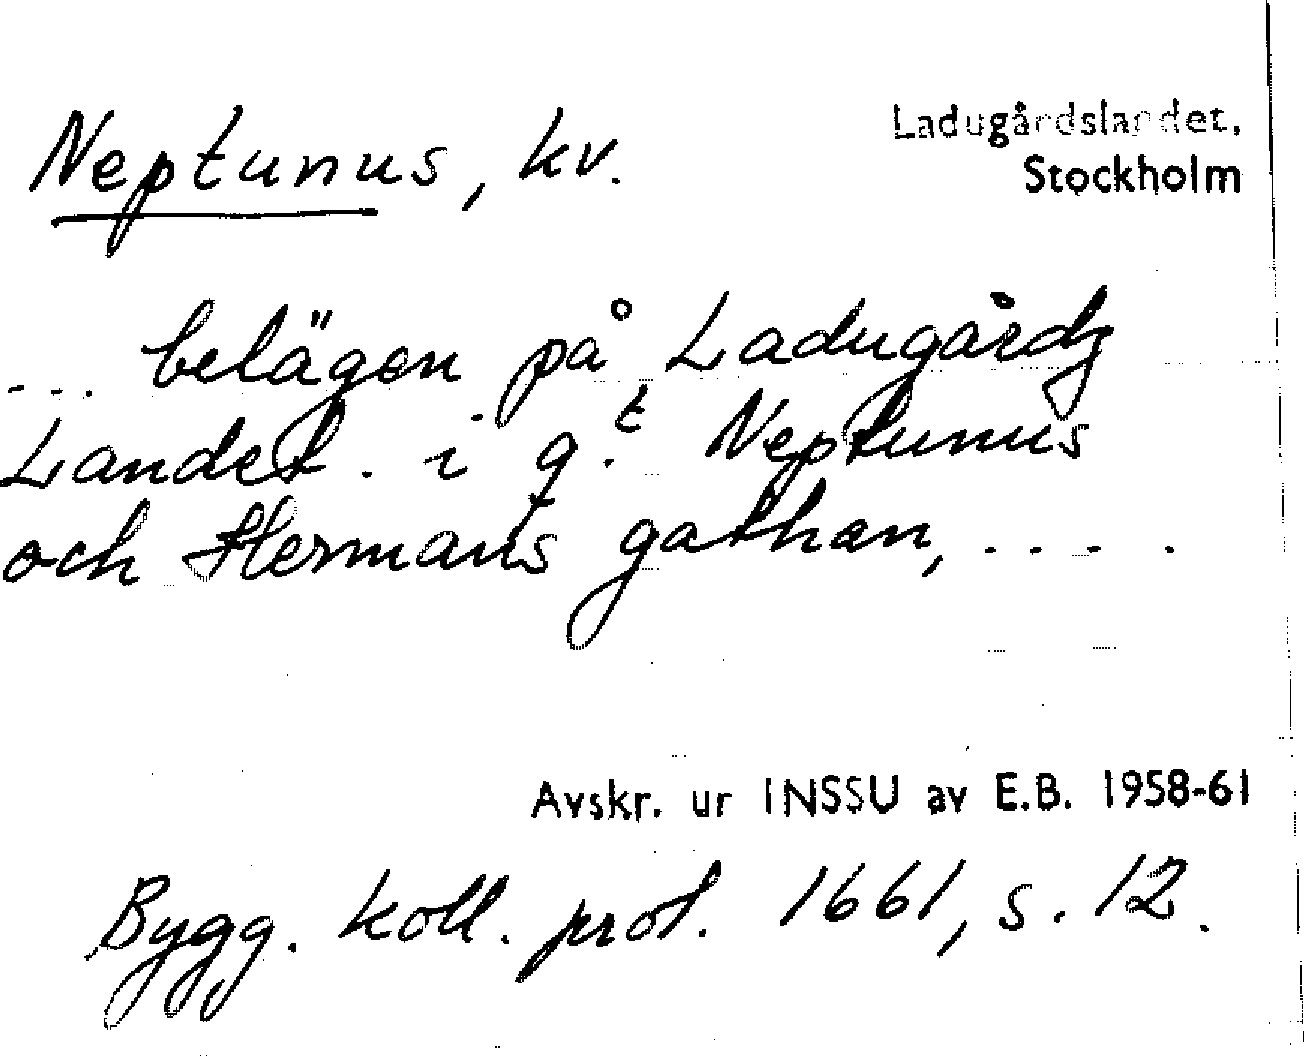 Neptunus, kv.
Ladugårdslandet,
Stockholm
... belägen på Ladugårdz
Landet. i q.t Neptunus
och Hermans gathan, ....
Avskr. ur INSSU av E.B. 1958-61
Bygg. koll. prot. 1661, s. 12.